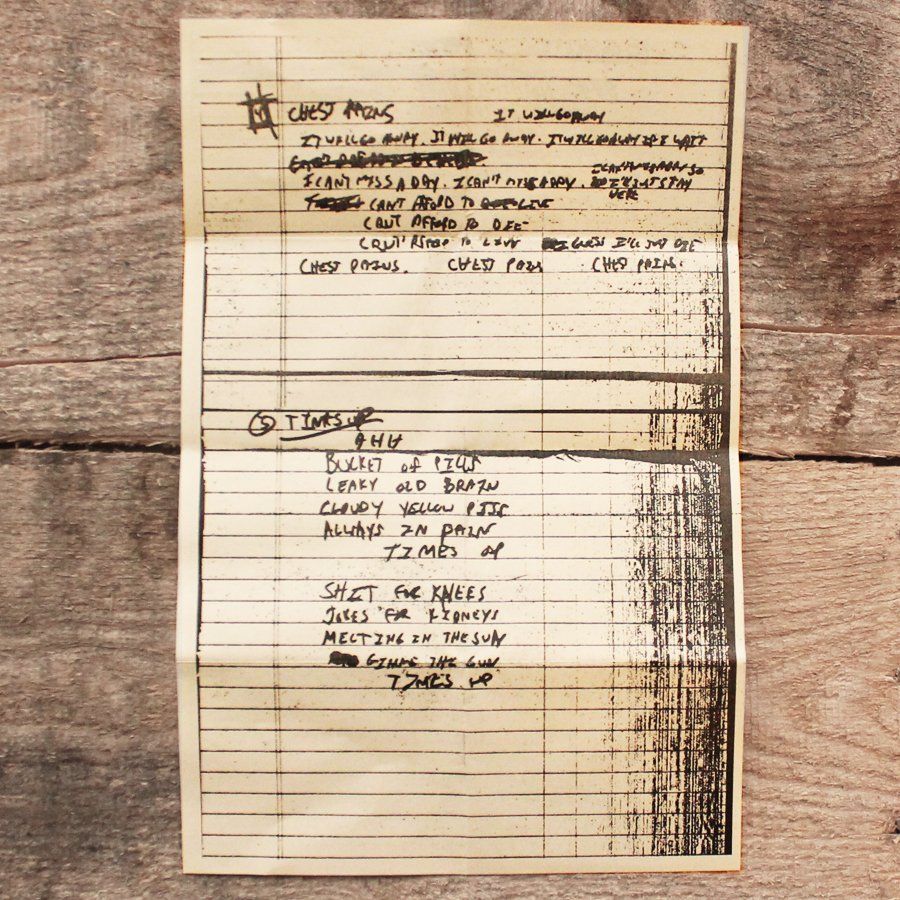 CHEST PAINS IT WILL GO AWAY
IT WILL GO AWAY. IT WILL GO AWAY. IT WILL GO AWAY IF I WAIT
I CAN'T MISS A DAY. I CAN'T MISS A DAY. I JUST STAY
HERE
CANT AFFORD TO LIVE
CANT AFFORD TO DIE
CANT AFFORD TO LIVE I GUESS I'LL JUST DIE
CHEST PAINS. CHEST PAINS CHEST PAINS.
5 TIMES UP
BUCKET OF PILLS
LEAKY OLD BRAIN
CLOUDY YELLOW PISS
ALLWAYS IN PAIN
TIMES UP
SHIT FOR KNEES
JOKES FOR KIDNEYS
MELTING IN THE SUN
GIMME THE GUN
TIMES UP